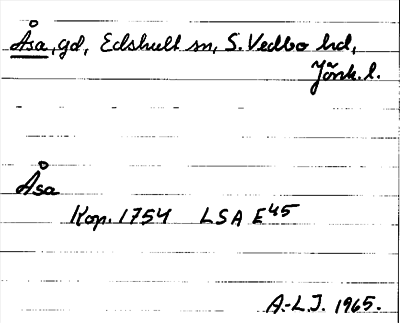 Åsa, gd, Edshult sn, S. Vedbo hd,
Jönk. l.
Åsa
Kop. 1754 LSA E45
A.-L.J. 1965.